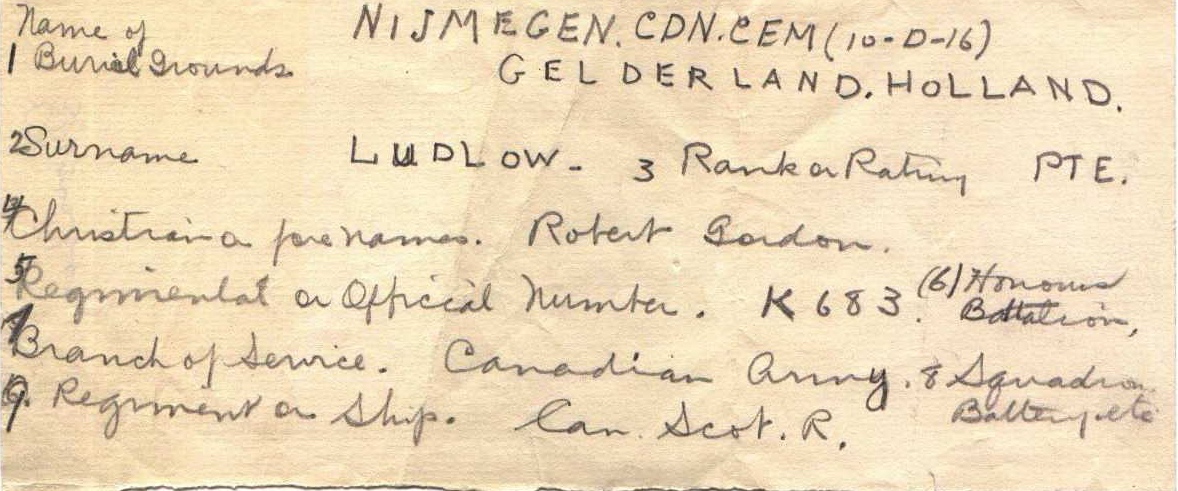 Name of NIJMEGEN. CDN. CEM (10-D-16)
1 Burial Grounds GELDERLAND. HOLLAND.
2 Surname LUDLOW - 3 Rank or Rating PTE.
4 Christian or forenames. Robert Gordon.
5 Regimental or Official Number. K 683. (6) Honours
Battalion,
7 Branch of Service. Canadian Army. 8 Squadron
Battery etc
9. Regiment or Ship. Can. Scot. R.